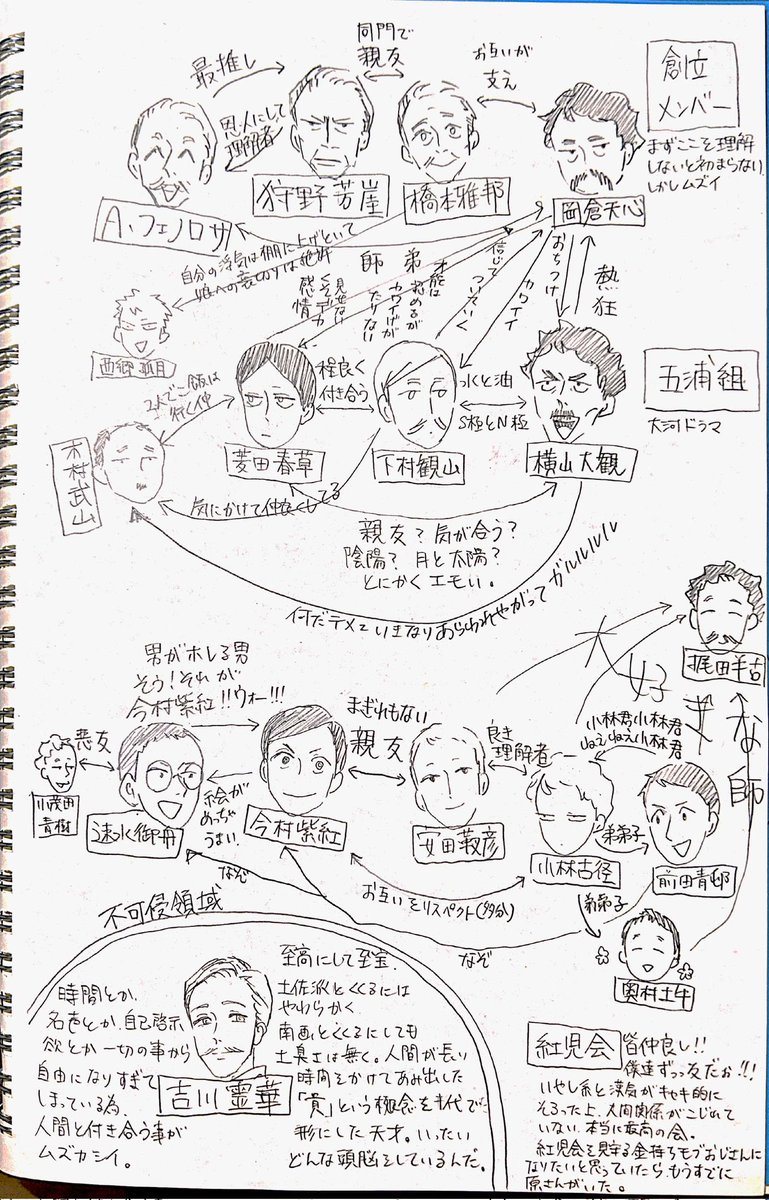 最推し
恩人にして
理解者
同門で
親友
お互いが
支え
創立
メンバー
まずここを理解
しないと初まらない
しかしムズイ
A.フェノロサ
狩野芳崖
橋本雅邦
岡倉天心
自分の浮気は棚に上げといて
娘への裏切りは絶許
師弟
見せない
くそデカ
感情
才能は
カワイげが
たりない
信じて
ついていく
カワイイ
おちつけ
熱狂
五浦組
大河ドラマ
2人でご飯は
行く仲
程良く
付き合う
水と油
S極とN極
木村武山
菱田春草
下村観山
横山大観
気にかけて仲良くしてる
親友?気が合う?
陰陽?月と太陽?
とにかくエモい。
何だテメェいきなりあらわれやがってガルルルルル
男がホレる男
そう!それが
今村紫紅!!ウォー!!!
まぎれもない
親友
良き
理解者
小林君小林君
ねえねえ小林君
大好きな師
梶田半古
悪友
絵が
めっちゃ
うまい
弟弟子
小茂田
青樹
速水御舟
今村紫紅
安田靫彦
小林古径
前田青邨
なぞ
お互いをリスペクト(多分)
なぞ
弟弟子
奥村土牛
不可侵領域
時間とか
名壱とか、自己啓示
欲とか一切の事から
自由になりすぎて
しまっている為、
人間と付き合う事が
ムズカシイ。
吉川霊華
至高にして至宝.
土佐派とくくるには
やわらかく
南画とくくるにしても
土臭さは無く。人間が長い
時間をかけてあみ出した
「貴」という概念を1代で
形にした天才。いったい
どんな頭脳をしているんだ。
紅児会
皆仲良し!!
僕達ずっ友だお!!!
いやし系と漢気がキャキ的に
そろった上、人間関係がこじれて
いない本当に最高の会。
紅児会を見守る金持ちモブおじさんに
なりたいと思っていたら、もうすでに
原さんがいた。